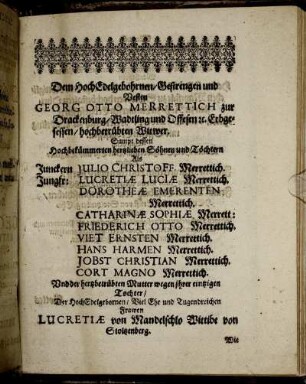 Dem HochEdelgebohrnen/ Gestrengen und
Vesten
GEORG OTTO MERRETTICH zur
Drackenburg/ Wadeling und Offesen ꝛc. Erbge-
sessen/ hochbetrübten Witwer.
Sampt dessen
Hochbekümmerten hertzlieben Söhnen und Töchtern
Als
Junckern JULIO CHRISTOFF Merrettich.
Jungfr: LUCRETIÆ LUCIÆ Merrettich.
DOROTHEÆ EMERENTEN
Merrettich.
CATHARINÆ SOPHIÆ Merrett:
FRIEDERICH OTTO Merrettich.
VIET ERNSTEN Merrettich.
HANS HARMEN Merrettich.
JOBST CHRISTIAN Merrettich.
CORT MAGNO Merrettich.
Und der hertzbetrübten Mutter wegen jhrer eintzigen
Tochter/
Der HochEdelgebornen/ Viel Ehr und Tugendreichen
Frawen
LUCRETIÆ von Mandelschlo Wittibe von
Stoltzenberg.
Mit